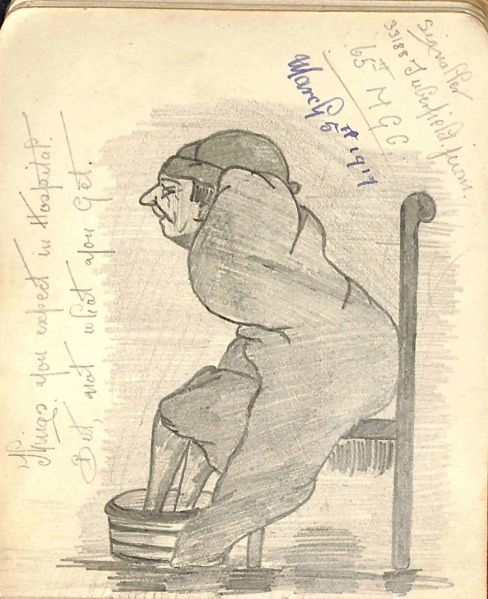 Signaller
33188
65th M G C
March 5th 1917
Things you expect in Hospital.
But, not what you Get.